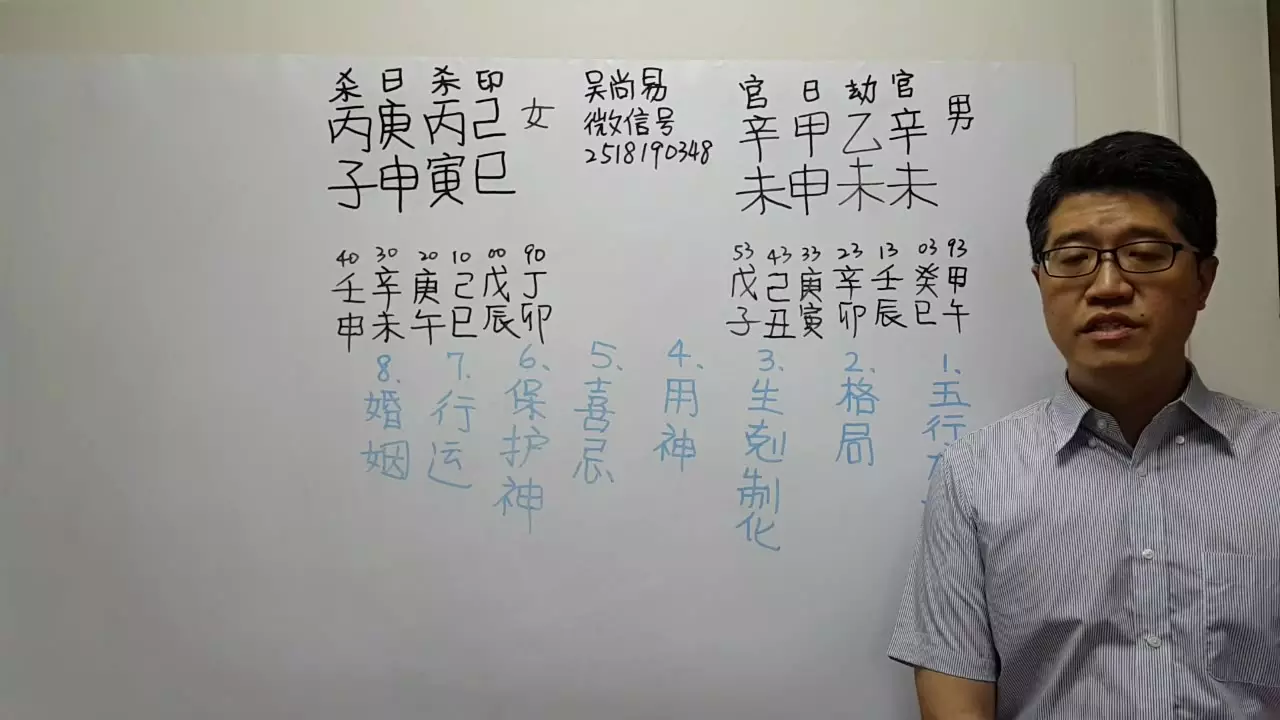 杀 日 杀 印
丙 庚 丙 己 女
子 申 寅 巳
吴尚易
微信号
2518190348
官 日 劫 官
辛 甲 乙 辛 男
未 申 未 未
40 30 20 10 00 90
壬 辛 庚 己 戊 丁
申 未 午 巳 辰 卯
53 43 33 23 13 03 93
戊 己 庚 辛 壬 癸 甲
子 丑 寅 卯 辰 巳 午
1、五行
2、格局
3、生剋制化
4、用神
5、喜忌
6、保护神
7、行运
8、婚姻